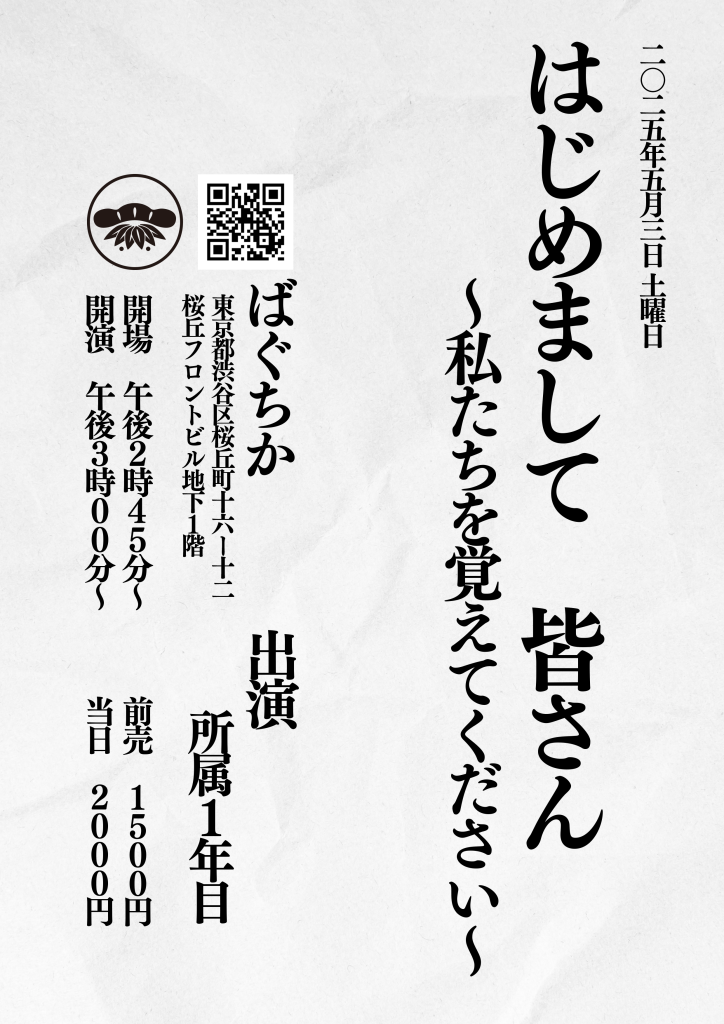 二〇二五年五月三日 土曜日
はじめまして 皆さん
〜私たちを覚えてください〜
ばぐちか
東京都渋谷区桜丘町十六ー十二
桜丘フロントビル地下1階
開場 午後2時45分〜
開演 午後3時00分〜
出演
所属1年目
前売 1500円
当日 2000円